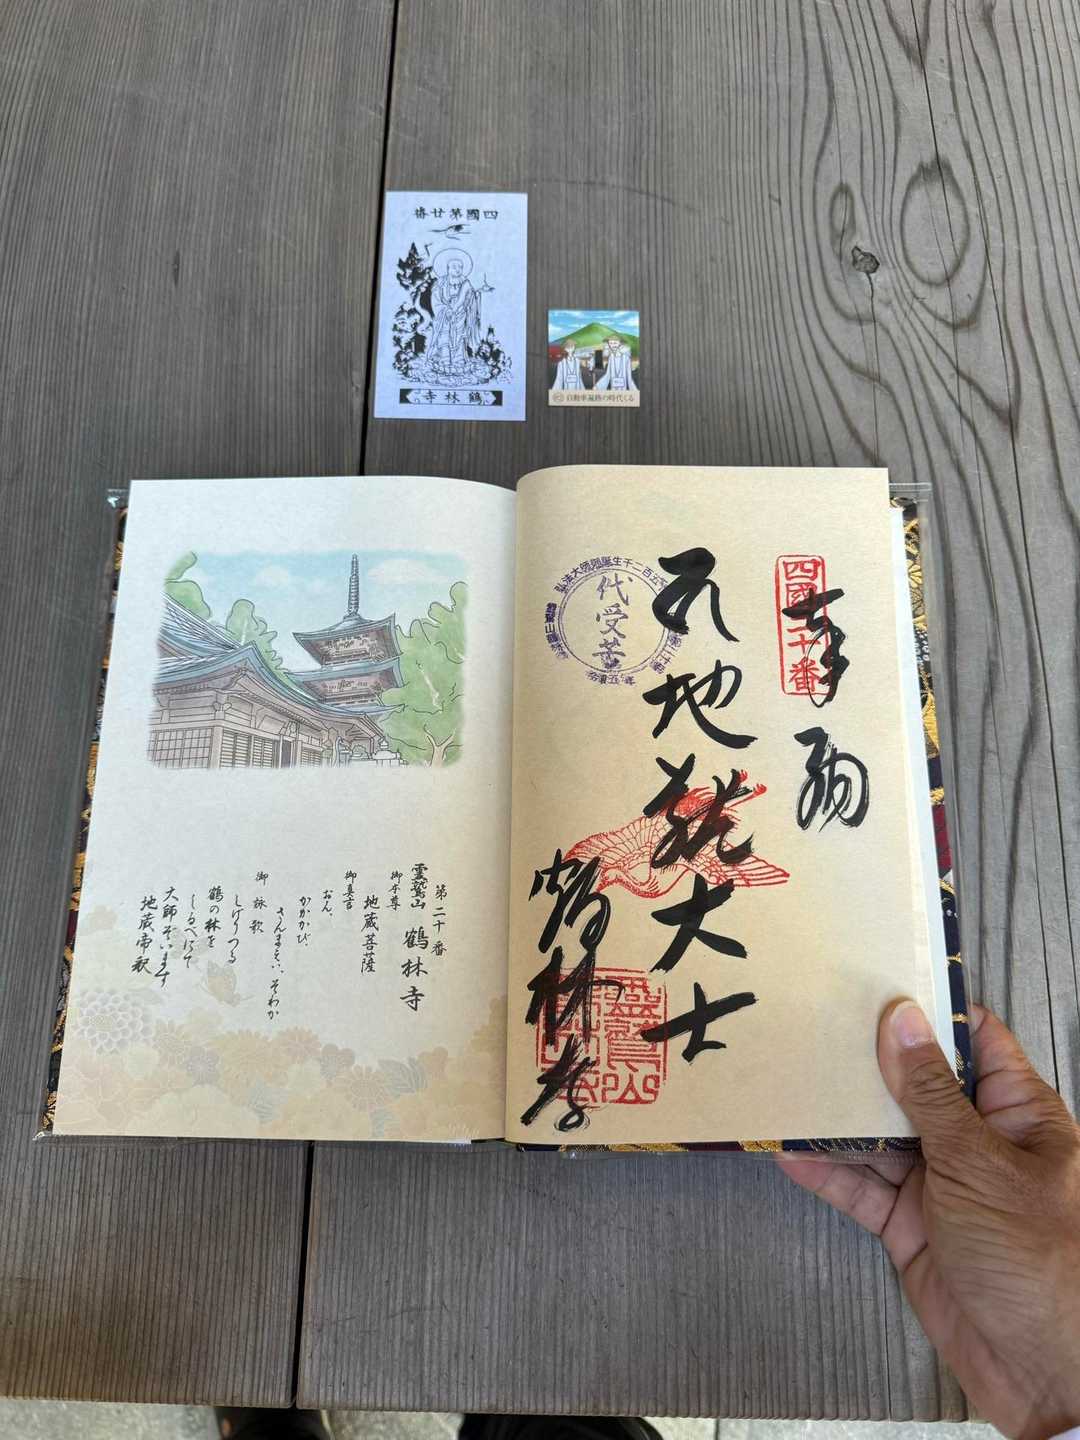 四國第廿番
鶴林寺
自動車遍路の時代くる
第二十番
霊鷲山 鶴林寺
御本尊
地蔵菩薩
御真言
おん、
かかかび、
さんまえい、そわか
御詠歌
しげりつる
鶴の林を
しるべにて
大師ぞいます
地蔵帝釈
四國二十番
奉納
地蔵大士
鶴林寺
代受苦